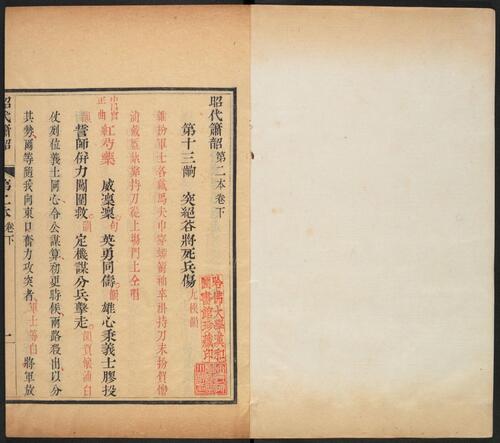 昭代簫韶 第二本卷下
第十三齣 突絕谷將死兵傷 九枝韻
雜扮軍士各戴馬夫巾穿蟒箭袖卒褂持刀末扮賀懷
浦戴盔紮靠持刀從上場門上仝唱
正曲 紅芍藥 威凜凜句英勇同儔韻雄心秉義士膠投
韻誓師併力闢圍救韻定機謀分兵擊走韻賀懷浦白
仗列位義士同心令公謀算初更時候兩路殺出以分
其勢爾等隨我向東口奮力攻突者軍士等白將軍放
昭代簫韶 第二本卷下 一
哈佛大學漢和圖書館珍藏印